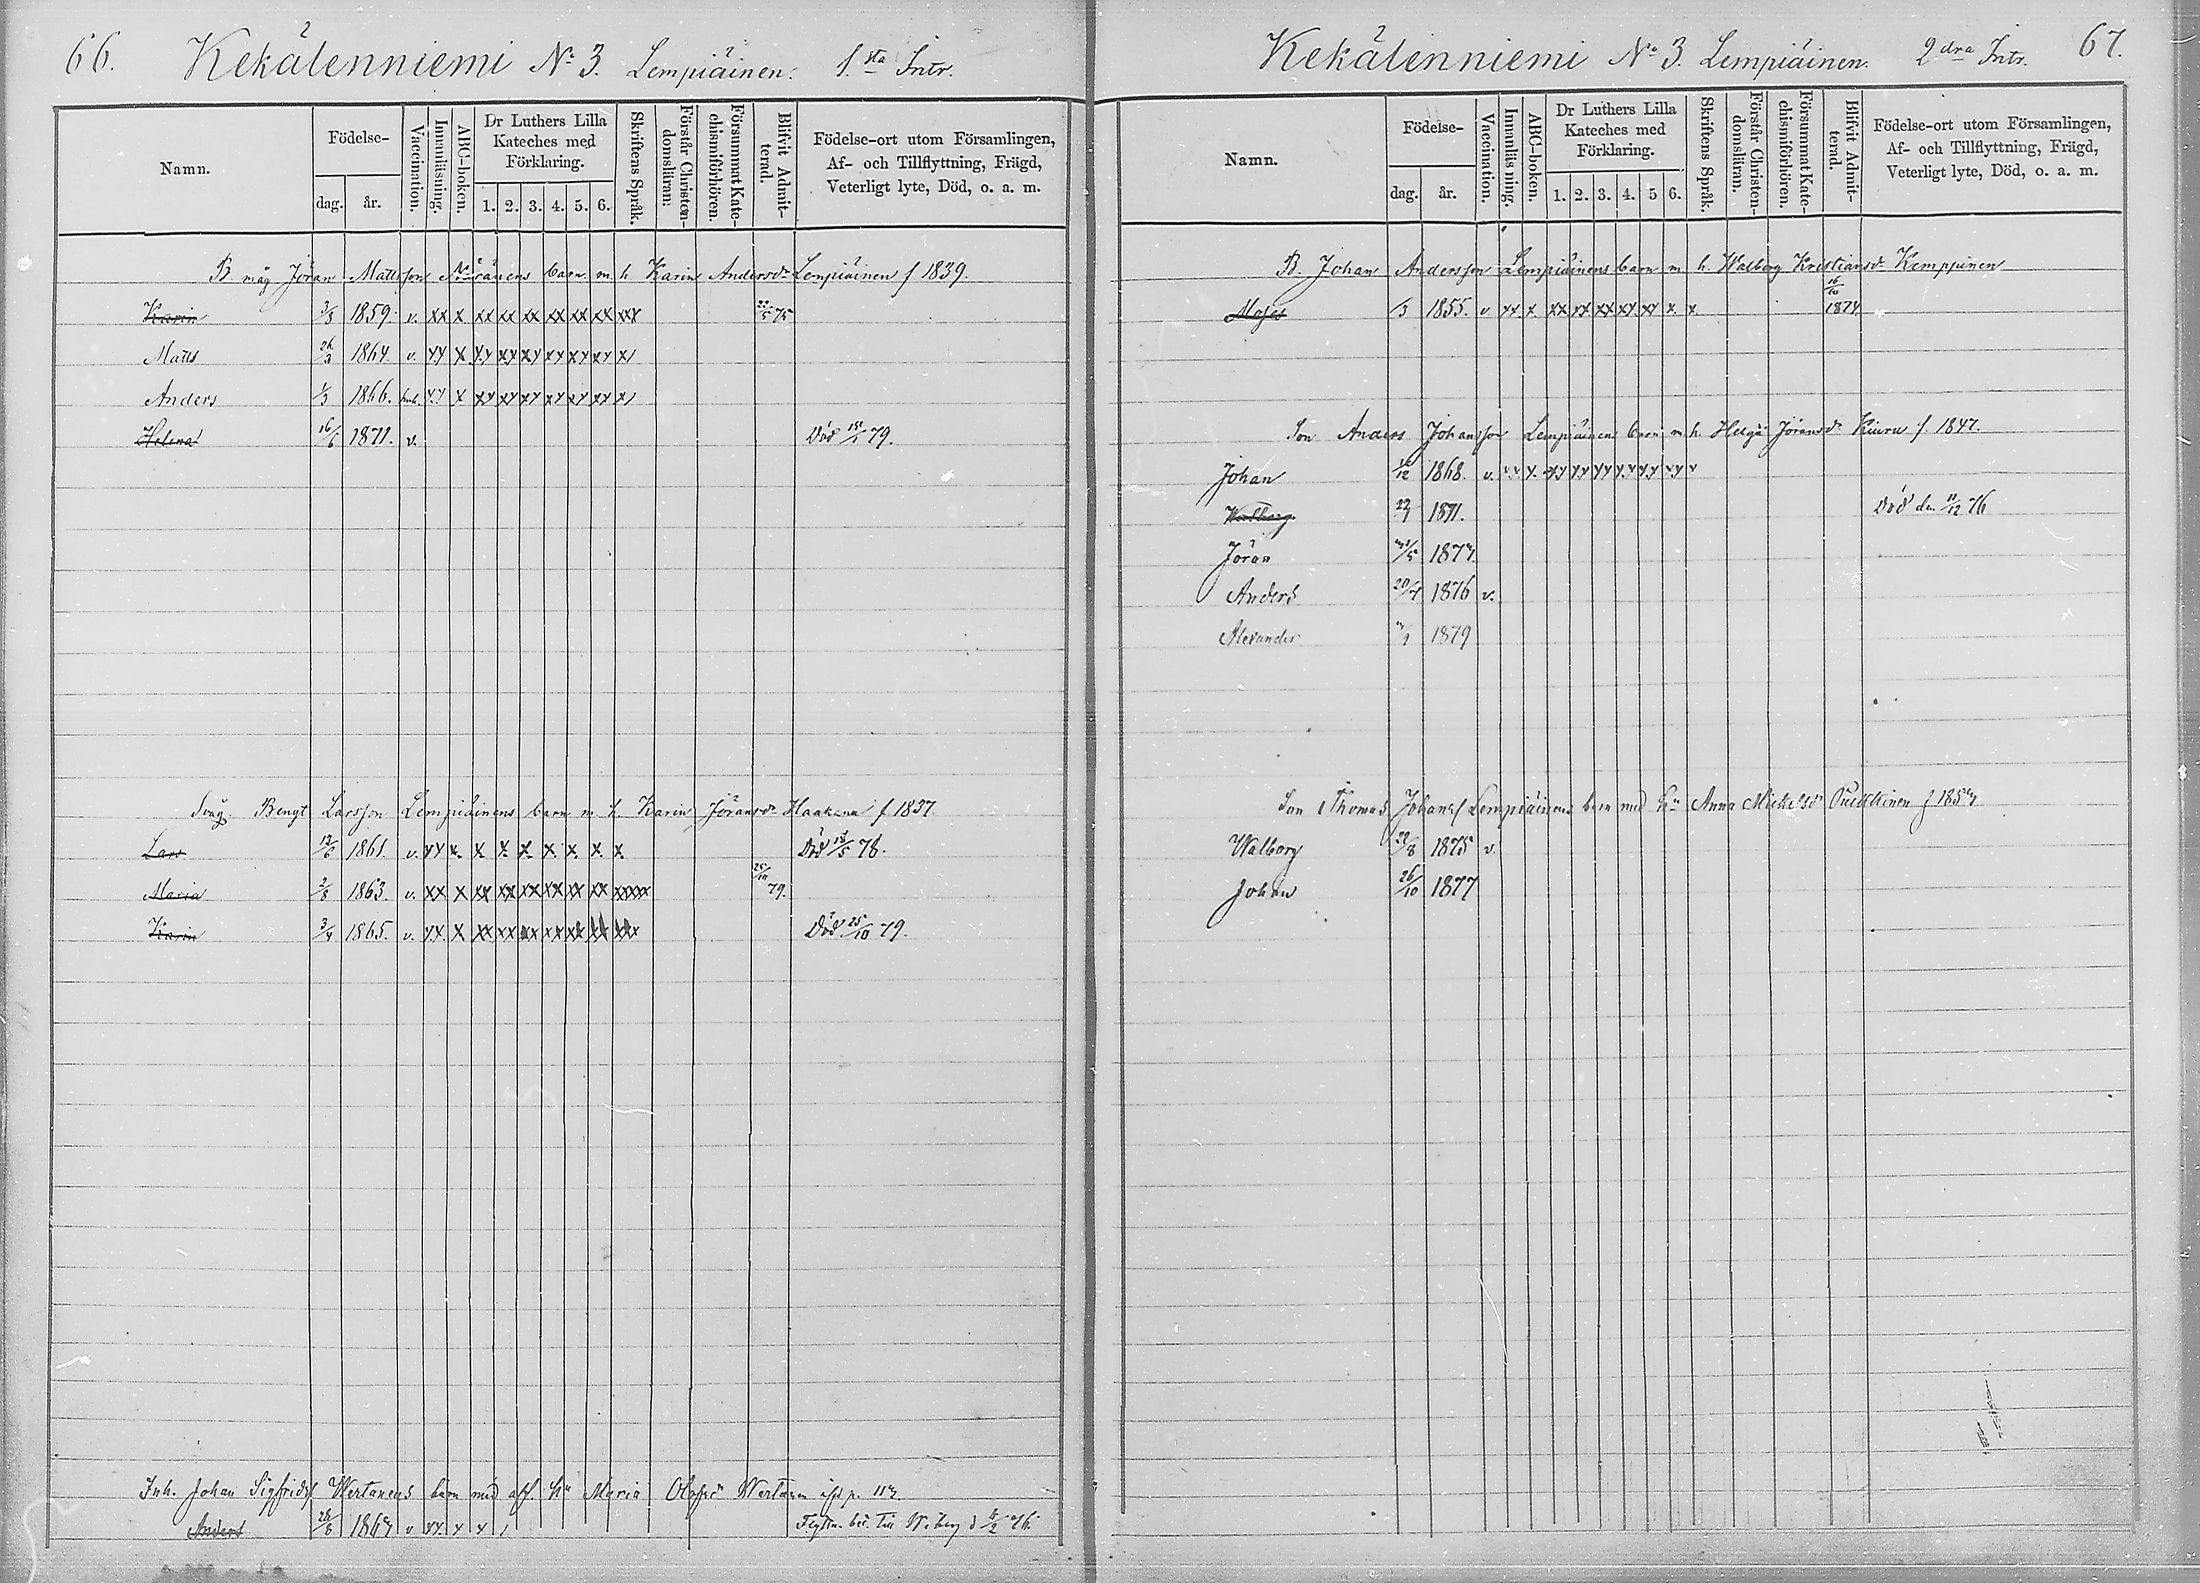 66. Kekälenniemi No 3. Lempiäinen. 1.sta Intr.
Namn.
Födelse-
dag. år.
Vaccination.
Innanläsning.
ABC-boken.
Dr Luthers Lilla Kateches med Förklaring.
1. 2. 3. 4. 5. 6.
Skriftens Språk.
Förstår Christendomsläran.
Försummat Katechismiförhören.
Blifvit Admitterad.
Födelse-ort utom Församlingen, Af- och Tillflyttning, Frägd, Veterligt lyte, Död, o. a. m.
B. måg Jöran Mattsson barn m. h. Karin Andersdr Lempiäinen f 1839.
Karin 3/3 1859. v. xx x xx xx xx xx xx xx xxx 22/5 75
Matts 26/3 1864. v. xx x xx xx xx xx xx xx x/
Anders 1/3 1866. xx x xx xx xx xx xx xx x/
Helena 16/6 1871. v. Död 79.
Svåg. Bengt Larsson Lempiäinens barn m. h. Karin Jöransdr Haakana f 1837
Lars 12/6 1861. v. xx x. x. x. x. x. x. x. x. Död 78.
Maria 2/8 1863. v. xx x xx xx xx xx xx xx xxxxx 25/10 79.
Karin 3/4 1865. v. xx. x xx xx xx xx xx xx xxx Död 25/10 79.
Inh. Johan Sigfridsf Wertanens barn med afl. hu Maria Olofsdr Wertanen
Anders 28/8 v xx x x /
Flyttn. bev. till W. borg d 76.
Kekälenniemi No 3. Lempiäinen. 2dra Intr. 67.
Namn.
Födelse-
dag. år.
Vaccination.
Innanläsning.
ABC-boken.
Dr Luthers Lilla Kateches med Förklaring.
1. 2. 3. 4. 5 6.
Skriftens Språk.
Förstår Christendomsläran.
Försummat Katechismiförhören.
Blifvit Admitterad.
Födelse-ort utom Församlingen, Af- och Tillflyttning, Frägd, Veterligt lyte, Död, o. a. m.
B. Johan Andersson Lempiäinens barn m h. Walborg Kristiansdr Kemppinen
Moses /3 1855. v xx x xx xx xx xx xx x x 1874
Son Anders Johansson Lempiäinens barn m h. Helga Jöransdr Kiuru f 1847.
Johan 1868. v. xx x. xx xx xx xx xx xx x
Walborg 1871. Död den 11/12 76
Jöran
Anders 20/4 1876 v.
Alexander 1879
Son Thomas Johansf Lempiäinens barn med hu Anna Mickelsdr
Walborg 22/8 1875 v.
Johan 26/10 1877